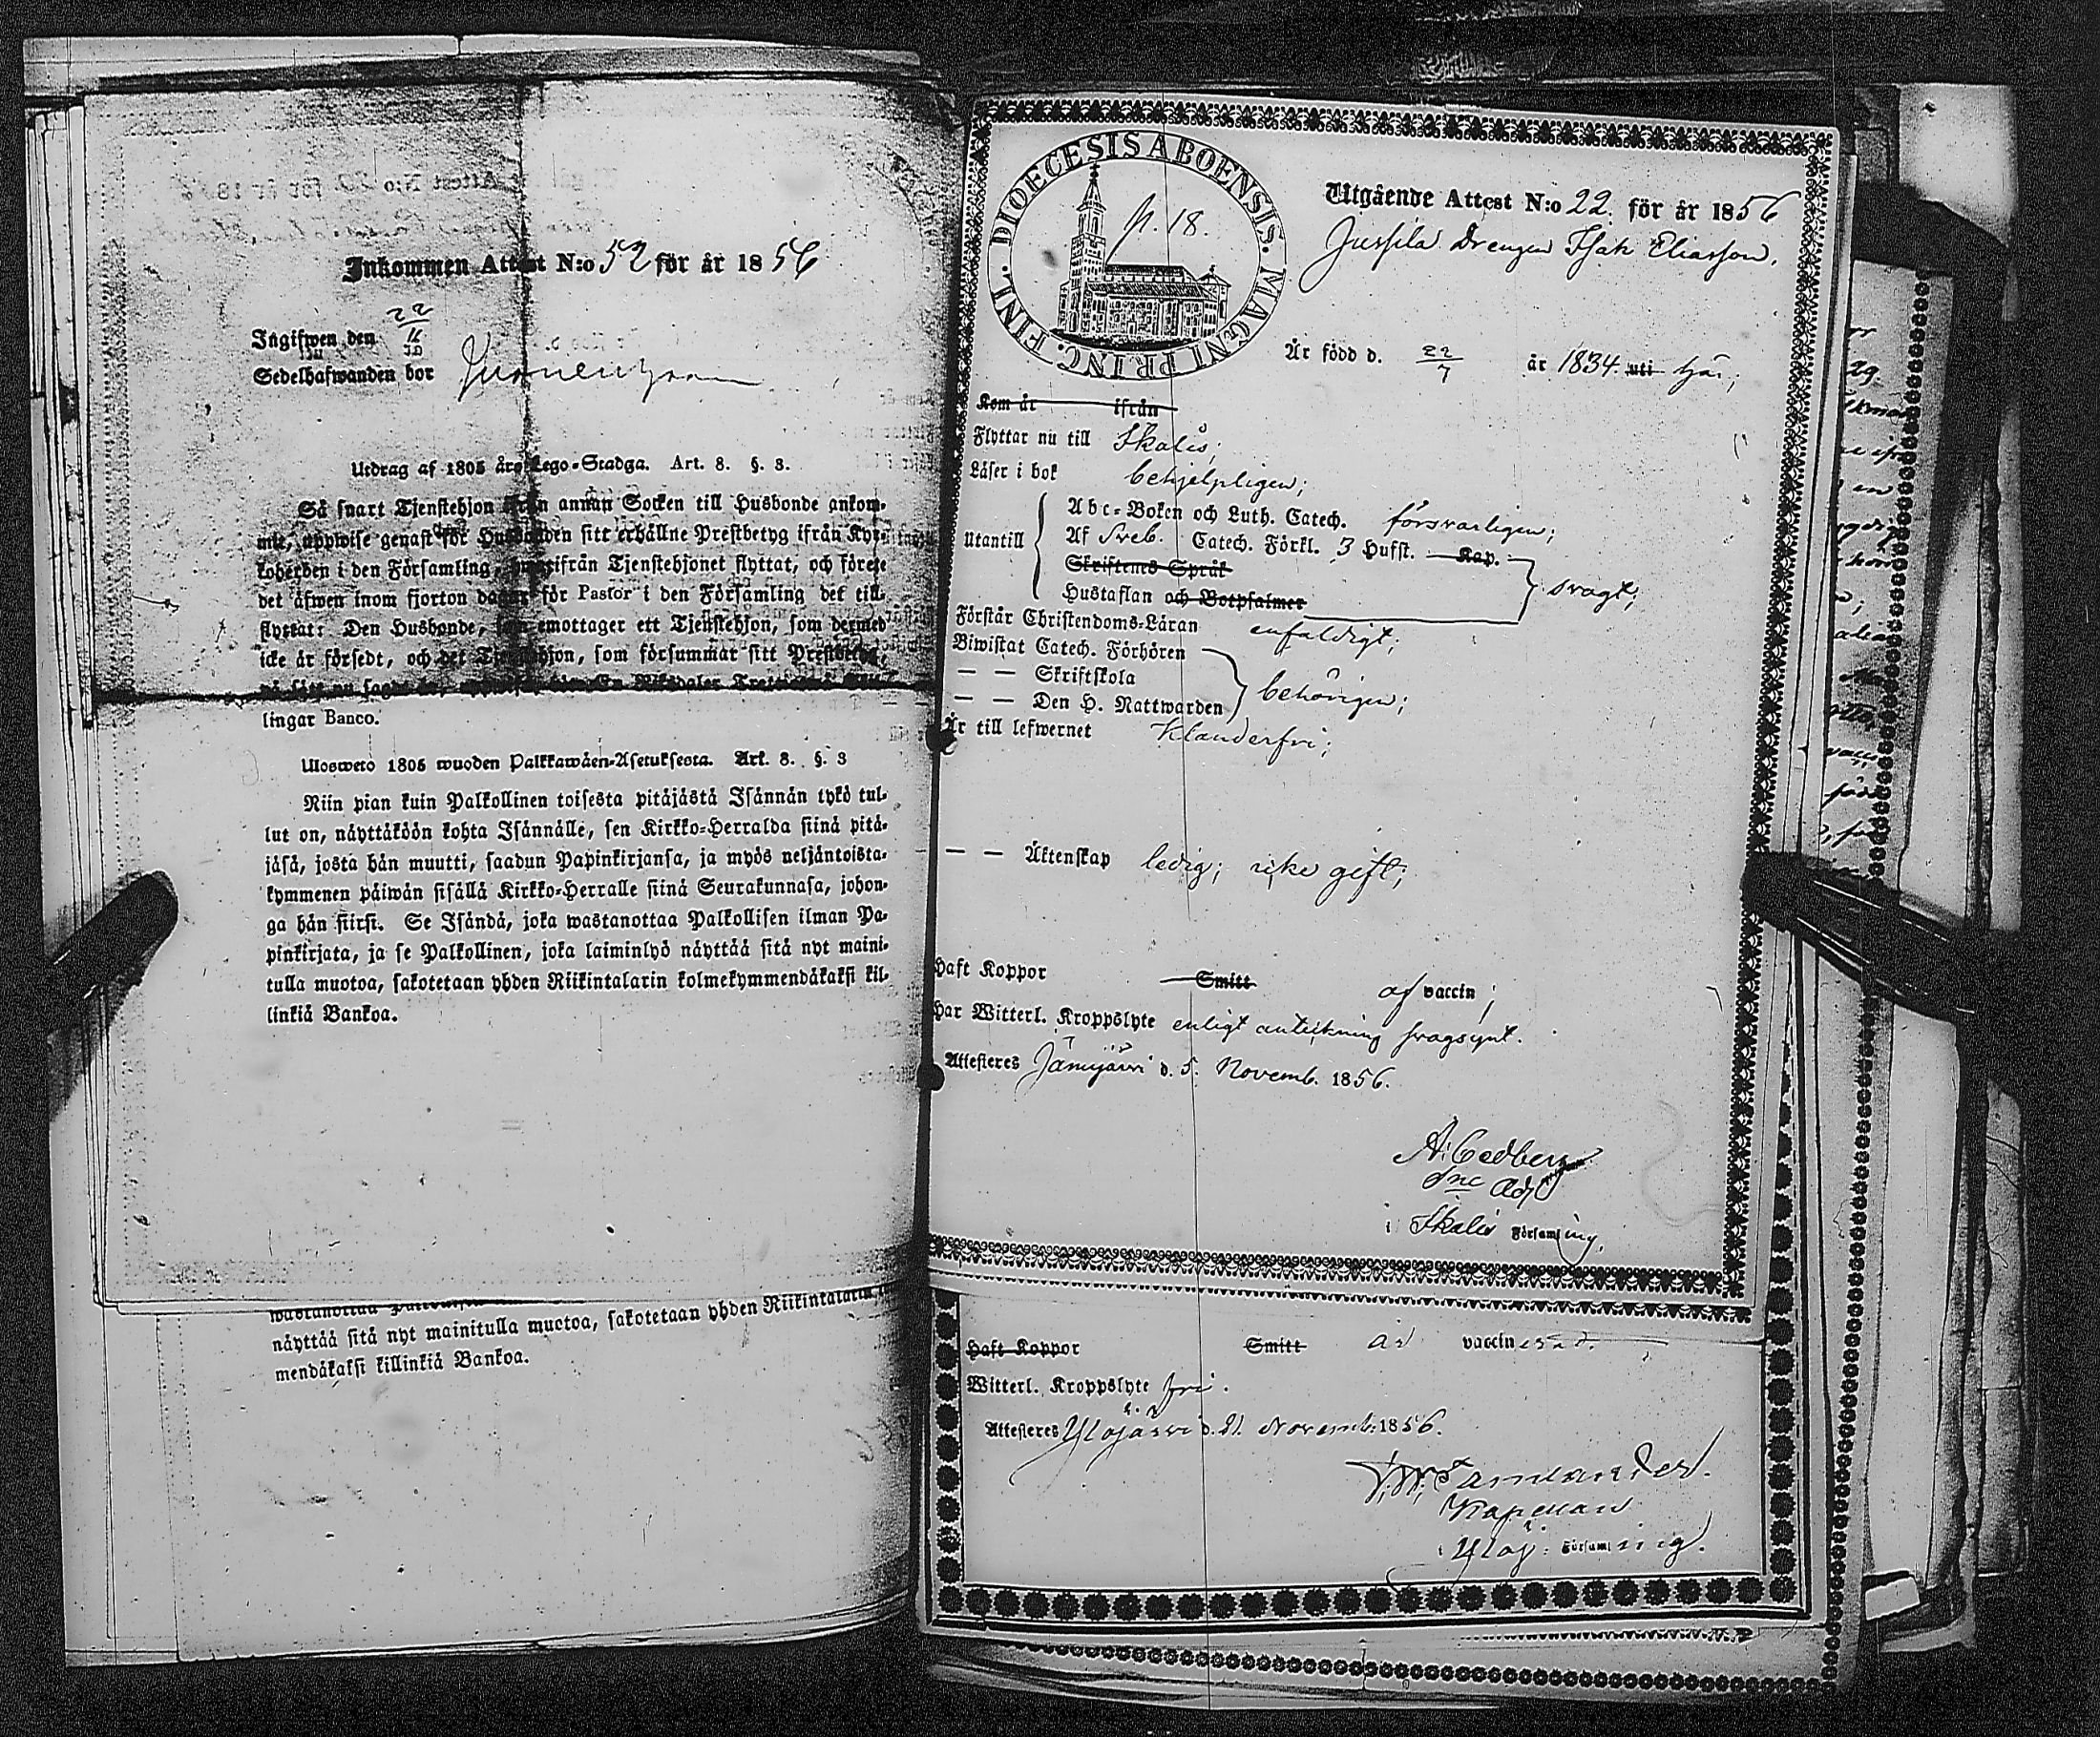 Inkommen Attest N:o 52 för år 1856
Ingifwen den 22/11
Sedelhafwanden bor
Utdrag af 1805 års Lego-Stadga. Art. 8. §. 3.
Så snart Tjenstehjon ifrån annan Socken till Husbonde ankom-
mit, uppwise genast för Husbonden sitt erhållne Prestbetyg ifrån Kyr-
koherden i den Församling, hwarifrån Tjenstehjonet flyttat, och förete
det äfwen inom fjorton dagar för Pastor i den Församling det till-
flyttat: Den Husbonde, som emottager ett Tjenstehjon, som dermed
icke är försedt, och det Tjenstehjon, som försummar sitt Prestbetyg,
lingar Banco.
Ulosweto 1805 wuoden Palkkawäen-Asetuksesta. Art. 8. §. 3
Niin pian kuin Palkollinen toisesta pitäjästä Isännän tykö tul-
lut on, näyttäköön kohta Isännälle, sen Kirkko-Herralda siinä pitä-
jäsä, josta hän muutti, saadun Papinkirjansa, ja myös neljäntoista-
kymmenen päiwän sisällä Kirkko-Herralle siinä Seurakunnasa, johon-
ga hän siirsi. Se Isändä, joka wastanottaa Palkollisen ilman Pa-
pinkirjata, ja se Palkollinen, joka laiminlyö näyttää sitä nyt maini-
tulla muotoa, sakotetaan yhden Riikintalarin kolmekymmendäkaksi kil-
linkiä Bankoa.
näyttää sitä nyt mainitulla muotoa, sakotetaan yhden Riikintalarin
mendäkaksi killinkiä Bankoa.
DIOECESIS ABOENSIS. MAGNI PRINC. FINL.
N. 18.
Utgående Attest N:o 22. för år 1856
Jussila Drengen Isak Eliasson,
Är född d. 22/7 år 1834 uti här;
Kom år ifrån
Flyttar nu till Ikalis;
Läser i bok behjelpligen;
Utantill
Abc-Boken och Luth. Catech. försvarligen;
Af Sveb. Catech. Förkl. 3 Hufst. Kap.
Skriftenes Språk
Hustaflan och Botpsalmer
svagt;
Förstår Christendoms-Läran enfaldigt;
Biwistat Catech. Förhören
— — Skriftskola
— — Den H. Nattwarden
behörigen;
Är till lefwernet Klanderfri;
— — Äktenskap ledig; icke gift;
Haft Koppor Smitt af vaccin;
Har Witterl. Kroppslyte enligt anteckning svagsynt.
Attesteres Jämijärvi d. 5. Novemb. 1856.
A: Cedberg
Adj
i Ikalis Församling.
Haft Koppor Smitt är vaccinerad.
Witterl. Kroppslyte fri.
Attesteres Ylöjärvi d. 21. Novemb. 1856.
Kapellan
i Ylöj: Församling.